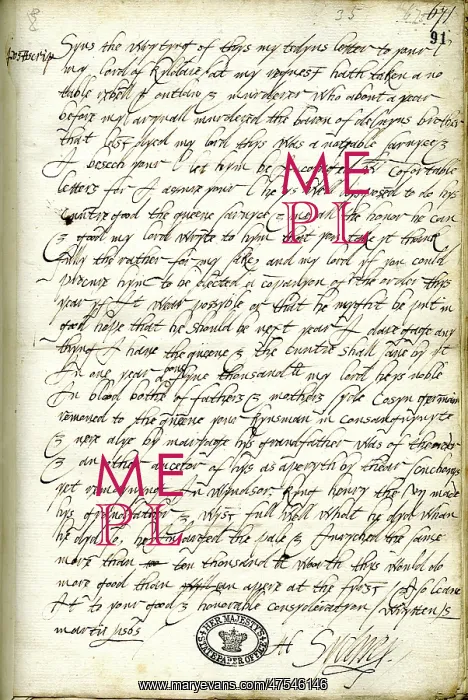 671
35
91
postscrip
Syns the wrytyng of thys my tedyus letter to your l
my lord of Kyldare at my request hath taken a no
table rebell & outlaw & murderer who about a year
before my aryvall murdered the baron of delvyns brother
that last dyed my lord thys was a notable servyce &
I besech your l let hym be confortable
letters for I assure your l he ys to do hys
cuntre good the queene servyce & the honor he can
& good my lord wryte to hym that you take yt thank
fully the rather for my sake, and my lord yf you could
procure hym to be elected a companyon of the order thys
year yf yt wear possyble or that he myght be put in
good hope that he should be next year I dare gage any
thyng I have the queene & the cuntre shall save by yt
In one year fyve thousand li my lord he ys noble
In blood bothe of fathers & mothers syde Cosyn german
removed to the queene your kynsman in consangwynyte
& nere alye by maryage hys grandfather was of the order
& an other ancetor of hys as aperyth by thear scuchons
yet remaynyng In wyndsor. kyng henry the vij made
hys grandfather & wyst full well what he dyd whan
he dyd so, he enlarged the pale & enryched the same
more than ten thousand li worth thys would do
more good than apere at the fyrst & so leave
It to your good & honorable consyderatyon wrytten ys
martii 1565
H Sydney
HER MAJESTY'S
STATE PAPER OFFICE
ME
PL
ME
PL
www.maryevans.com/47546146